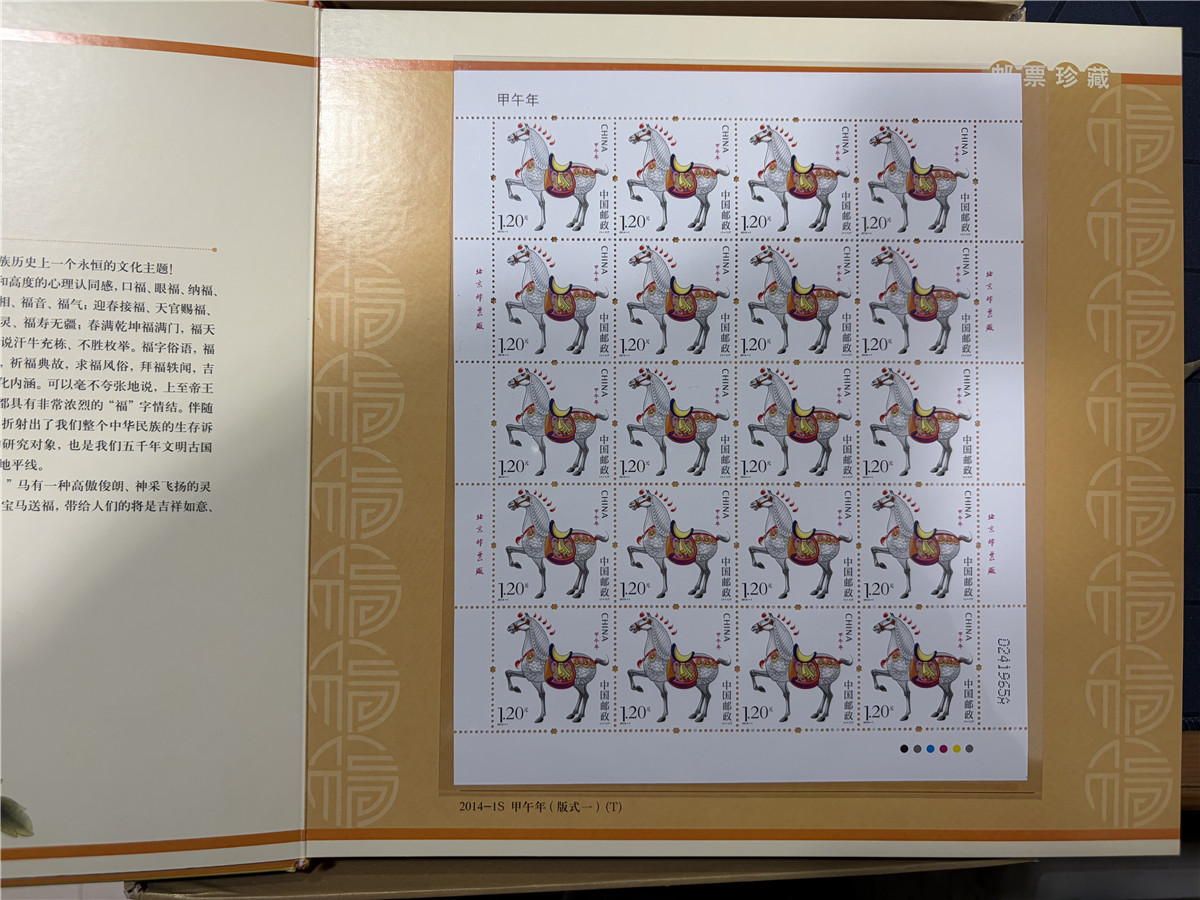 族历史上一个永恒的文化主题！
和高度的心理认同感，口福、眼福、纳福、
相、福音、福气；迎春接福、天官赐福、
灵、福寿无疆；春满乾坤福满门，福天
说汗牛充栋、不胜枚举。福字俗语，福
，祈福典故，求福风俗，拜福轶闻，吉
化内涵。可以毫不夸张地说，上至帝王
都具有非常浓烈的“福”字情结。伴随
折射出了我们整个中华民族的生存诉
研究对象，也是我们五千年文明古国
地平线。
”马有一种高傲俊朗、神采飞扬的灵
宝马送福，带给人们的将是吉祥如意、
邮票珍藏
甲午年
CHINA 甲午年 中国邮政 1.20元
CHINA 甲午年 中国邮政 1.20元
CHINA 甲午年 中国邮政 1.20元
CHINA 甲午年 中国邮政 1.20元
北京邮票厂
CHINA 甲午年 中国邮政 1.20元
CHINA 甲午年 中国邮政 1.20元
CHINA 甲午年 中国邮政 1.20元
CHINA 甲午年 中国邮政 1.20元
北京邮票厂
CHINA 甲午年 中国邮政 1.20元
CHINA 甲午年 中国邮政 1.20元
CHINA 甲午年 中国邮政 1.20元
CHINA 甲午年 中国邮政 1.20元
北京邮票厂
CHINA 甲午年 中国邮政 1.20元
CHINA 甲午年 中国邮政 1.20元
CHINA 甲午年 中国邮政 1.20元
CHINA 甲午年 中国邮政 1.20元
北京邮票厂
CHINA 甲午年 中国邮政 1.20元
CHINA 甲午年 中国邮政 1.20元
CHINA 甲午年 中国邮政 1.20元
CHINA 甲午年 中国邮政 1.20元
0241965
2014-1S 甲午年（版式一）(T)